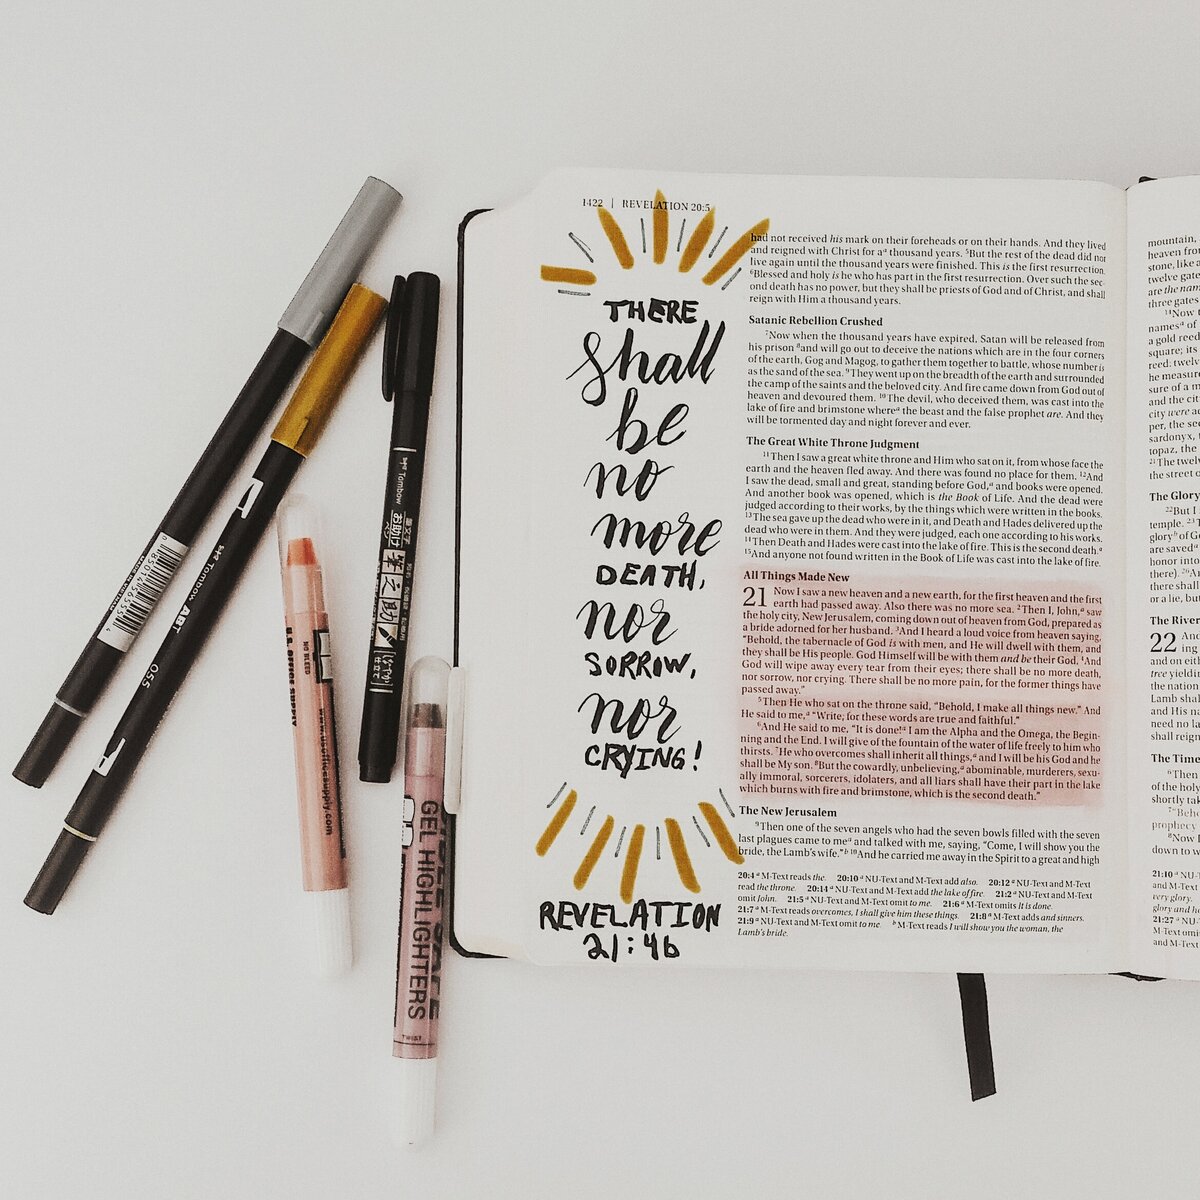 1422 | REVELATION 20:5
THERE
shall
be
no
more
DEATH,
nor
SORROW,
nor
CRYING!
REVELATION
21:4b
had not received his mark on their foreheads or on their hands. And they lived
and reigned with Christ for aᵃ thousand years. ⁵But the rest of the dead did not
live again until the thousand years were finished. This is the first resurrection.
⁶Blessed and holy is he who has part in the first resurrection. Over such the sec-
ond death has no power, but they shall be priests of God and of Christ, and shall
reign with Him a thousand years.
Satanic Rebellion Crushed
⁷Now when the thousand years have expired, Satan will be released from
his prison ⁸and will go out to deceive the nations which are in the four corners
of the earth, Gog and Magog, to gather them together to battle, whose number is
as the sand of the sea. ⁹They went up on the breadth of the earth and surrounded
the camp of the saints and the beloved city. And fire came down from God out of
heaven and devoured them. ¹⁰The devil, who deceived them, was cast into the
lake of fire and brimstone whereᵃ the beast and the false prophet are. And they
will be tormented day and night forever and ever.
The Great White Throne Judgment
¹¹Then I saw a great white throne and Him who sat on it, from whose face the
earth and the heaven fled away. And there was found no place for them. ¹²And
I saw the dead, small and great, standing before God,ᵃ and books were opened.
And another book was opened, which is the Book of Life. And the dead were
judged according to their works, by the things which were written in the books.
¹³The sea gave up the dead who were in it, and Death and Hades delivered up the
dead who were in them. And they were judged, each one according to his works.
¹⁴Then Death and Hades were cast into the lake of fire. This is the second death.ᵃ
¹⁵And anyone not found written in the Book of Life was cast into the lake of fire.
All Things Made New
21 Now I saw a new heaven and a new earth, for the first heaven and the first
earth had passed away. Also there was no more sea. ²Then I, John,ᵃ saw
the holy city, New Jerusalem, coming down out of heaven from God, prepared as
a bride adorned for her husband. ³And I heard a loud voice from heaven saying,
"Behold, the tabernacle of God is with men, and He will dwell with them, and
they shall be His people. God Himself will be with them and be their God. ⁴And
God will wipe away every tear from their eyes; there shall be no more death,
nor sorrow, nor crying. There shall be no more pain, for the former things have
passed away."
⁵Then He who sat on the throne said, "Behold, I make all things new." And
He said to me,ᵃ "Write, for these words are true and faithful."
⁶And He said to me, "It is done!ᵃ I am the Alpha and the Omega, the Begin-
ning and the End. I will give of the fountain of the water of life freely to him who
thirsts. ⁷He who overcomes shall inherit all things,ᵃ and I will be his God and he
shall be My son. ⁸But the cowardly, unbelieving,ᵃ abominable, murderers, sexu-
ally immoral, sorcerers, idolaters, and all liars shall have their part in the lake
which burns with fire and brimstone, which is the second death."
The New Jerusalem
⁹Then one of the seven angels who had the seven bowls filled with the seven
last plagues came to meᵃ and talked with me, saying, "Come, I will show you the
bride, the Lamb's wife."ᵇ ¹⁰And he carried me away in the Spirit to a great and high
20:4 ᵃ M-Text reads the. 20:10 ᵃ NU-Text and M-Text add also. 20:12 ᵃ NU-Text and M-Text
read the throne. 20:14 ᵃ NU-Text and M-Text add the lake of fire. 21:2 ᵃ NU-Text and M-Text
omit John. 21:5 ᵃ NU-Text and M-Text omit to me. 21:6 ᵃ M-Text omits It is done.
21:7 ᵃ M-Text reads overcomes, I shall give him these things. 21:8 ᵃ M-Text adds and sinners.
21:9 ᵃ NU-Text and M-Text omit to me. ᵇ M-Text reads I will show you the woman, the
Lamb's bride.
mountain,
heaven from
stone, like a
twelve gates
are the nam
three gates
¹⁴Now t
namesᵃ of
a gold reed
square; its
reed: twelve
he measure
sure of a m
and the city
city were a
per, the sec
sardonyx, t
topaz, the
²¹The twelv
the street o
The Glory
²²But I
temple. ²³
gloryᵇ of G
are savedᵃ
honor into
there). ²⁶A
there shall
or a lie, but
The River
22 And
ing
and on eith
tree yieldin
the nation
Lamb shall
and His na
need no la
shall reign
The Time
⁶Then
of the holy
shortly tak
⁷"Beho
prophecy
⁸Now I
down to w
21:10 ᵃ N
and M-Tex
very glory.
glory and h
21:27 ᵃ NU
M-Text omi
and M-Tex
Tombow
ART
055
Tombow
筆之助
U.S. OFFICE SUPPLY
NO BLEED
www.usofficesupply.com
GEL HIGHLIGHTERS
TWIST